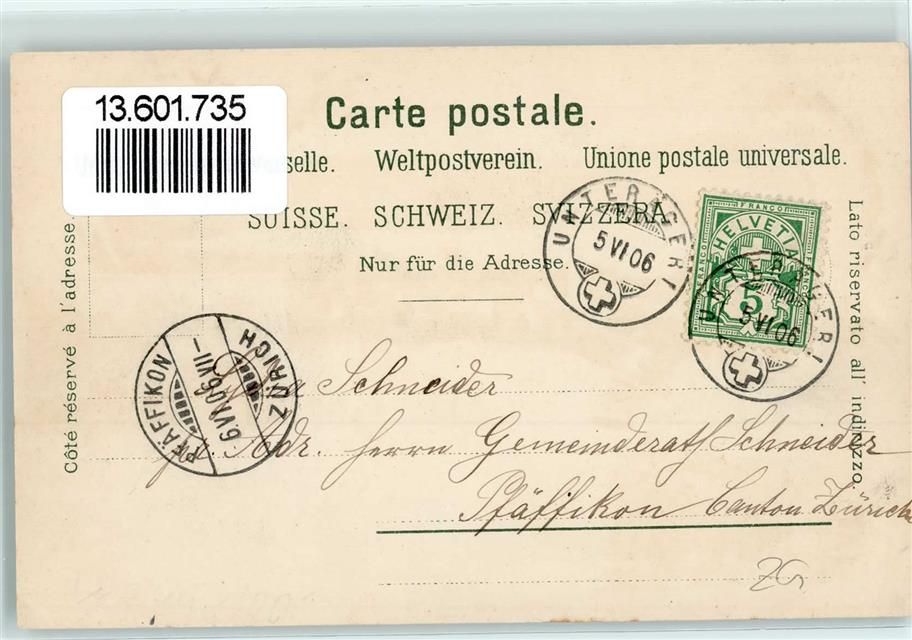 13.601.735
Carte postale.
selle. Weltpostverein. Unione postale universale.
SUISSE. SCHWEIZ. SVIZZERA.
Nur für die Adresse.
Côté réservé à l'adresse.
Lato riservato all' indirizzo.
UNTERÄGERI
5 VI 06
FRANCO
HELVETIA
FRANCO
5
UNTERÄGERI
5 VI 06
PFÄFFIKON
6 VI 06 VII
ZÜRICH
Schneider
pr. Adr. Herrn Gemeinderath Schneider
Pfäffikon Canton Zürich
ZG